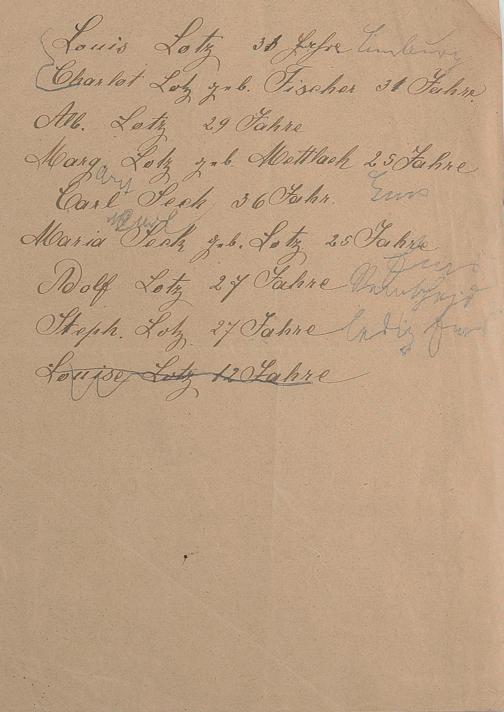 Louis Lotz 31 Jahre Limburg
Charlot Lotz geb. Fischer 31 Jahre.
Alb. Lotz 29 Jahre
Marg. Lotz geb. Mettlach 25 Jahre
Carl Sech 36 Jahr. Ems
Maria Seck geb. Lotz 25 Jahre
Adolf Lotz 27 Jahre
Steph. Lotz 27 Jahre ledig
Louise Lotz 12 Jahre